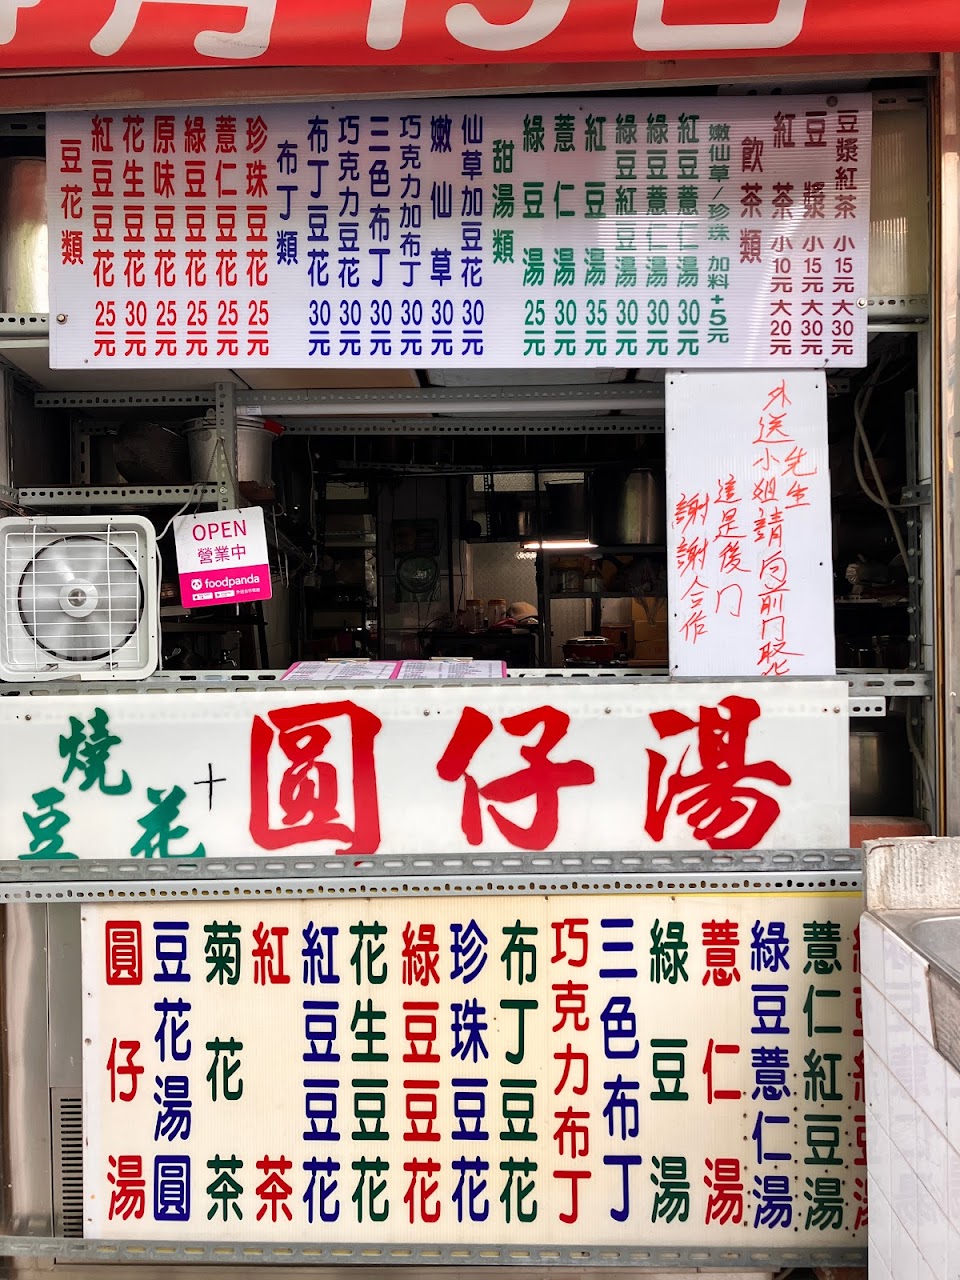 豆花類
紅豆豆花25元
花生豆花30元
原味豆花25元
綠豆豆花25元
薏仁豆花25元
珍珠豆花25元
布丁類
布丁豆花30元
巧克力豆花30元
三色布丁30元
巧克力加布丁30元
嫩仙草30元
仙草加豆花30元
甜湯類
綠豆湯25元
薏仁湯30元
紅豆湯35元
綠豆紅豆湯30元
綠豆薏仁湯30元
紅豆薏仁湯30元
嫩仙草/珍珠 加料+5元
飲茶類
紅茶 小10元大20元
豆漿 小15元大30元
豆漿紅茶 小15元大30元
外送小姐先生請向前門取
這是後门
謝謝合作
OPEN
營業中
foodpanda
燒豆花+圓仔湯
圓仔湯
豆花湯圓
菊花茶
紅茶
紅豆豆花
花生豆花
綠豆豆花
珍珠豆花
布丁豆花
巧克力布丁
三色布丁
綠豆湯
薏仁湯
綠豆薏仁湯
薏仁紅豆湯